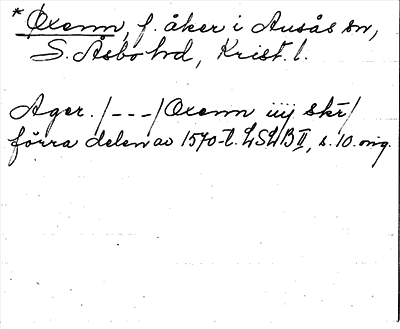 * Oxenn, f. åker i Ausås sn,
S. Åsbo hd, Krist. l.
Ager. /---/ Oxenn iiij skr/
förra delen av 1570-t. LSLB II, s. 10. orig.